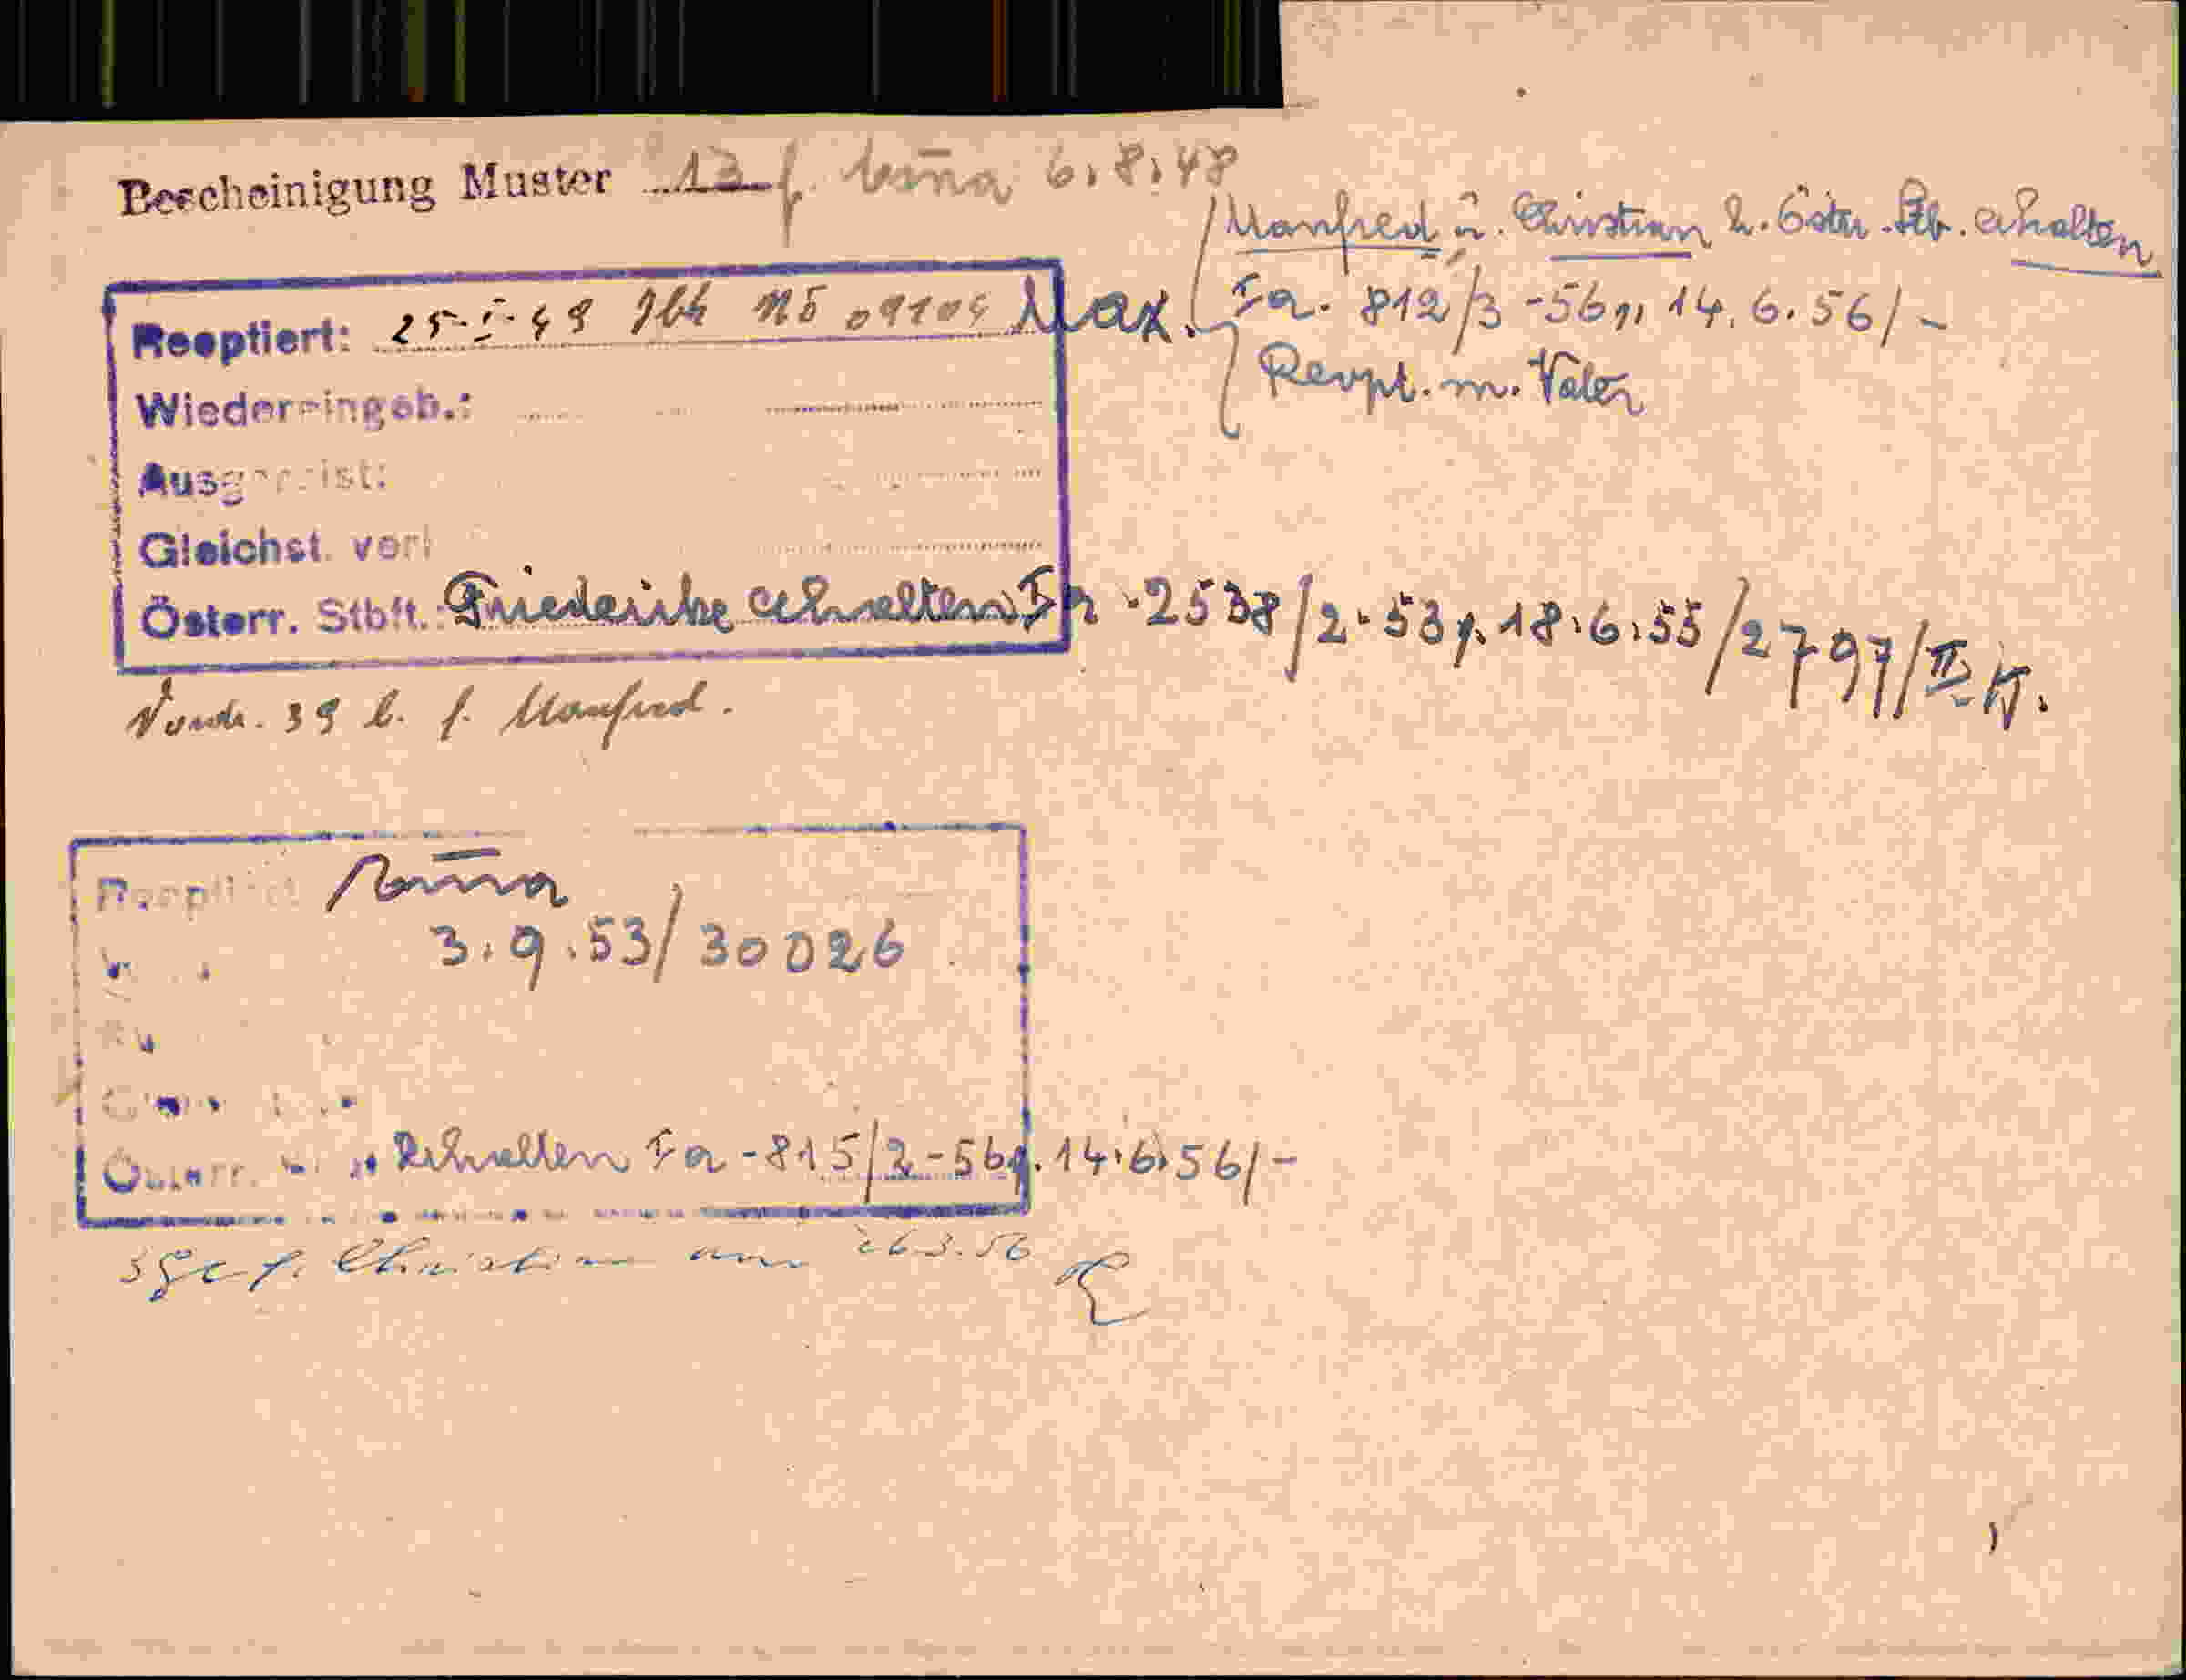 Bescheinigung Muster 13 f. 6.8.48
Manfred u. Christian h. Öster. Stb. erhalten
Ia. 812/3-56 14.6.56/-
Reopt. m. Vater
Reoptiert: 25-I-49 Ibk NÖ 09104 Max.
Wiedereingeb.:
Ausgereist:
Gleichst. verl
Österr. Stbft.: Friederike erhalten Ia-2538/2-53 v. 18.6.55/2797/II
39 b. f. Manfred.
Reoptiert
3.9.53/30026
Österr. Erhalten Ia-815/2-56 v. 14.6.56/-
39c f. Christian am 26.3.56